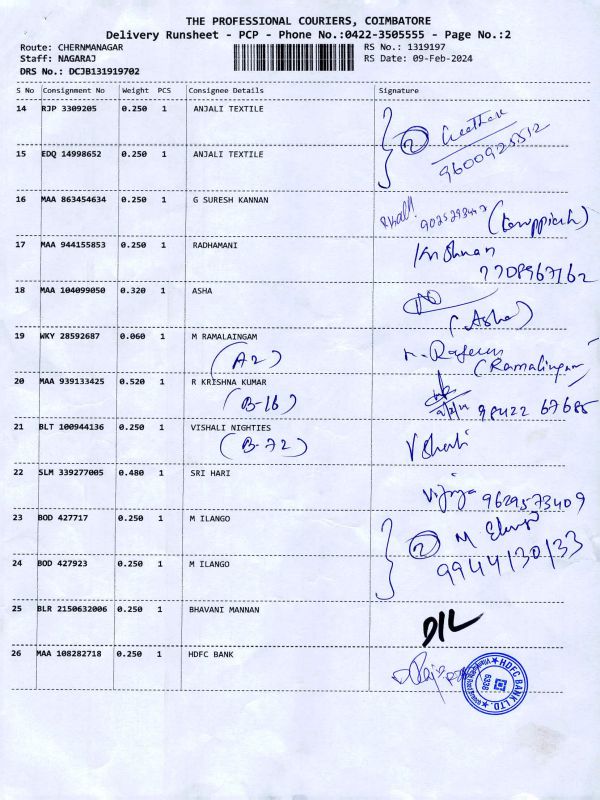 THE PROFESSIONAL COURIERS, COIMBATORE
Delivery Runsheet - PCP - Phone No.:0422-3505555 - Page No.:2
Route: CHERNMANAGAR RS No.: 1319197
Staff: NAGARAJ RS Date: 09-Feb-2024
DRS No.: DCJB131919702
S No Consignment No Weight PCS Consignee Details Signature
14 RJP 3309205 0.250 1 ANJALI TEXTILE
2 Geetha
9600925512
15 EDQ 14998652 0.250 1 ANJALI TEXTILE
16 MAA 863454634 0.250 1 G SURESH KANNAN
17 MAA 944155853 0.250 1 RADHAMANI Krishnan
7708967162
18 MAA 104099050 0.320 1 ASHA
(Asha)
19 WKY 28592687 0.060 1 M RAMALAINGAM
(A2) (Ramalingam)
20 MAA 939133425 0.520 1 R KRISHNA KUMAR
(B-16) 98422 67685
21 BLT 100944136 0.250 1 VISHALI NIGHTIES
(B-72) Vshali
22 SLM 339277005 0.480 1 SRI HARI
Vijiya 9629573409
23 BOD 427717 0.250 1 M ILANGO
2 M
9944130133
24 BOD 427923 0.250 1 M ILANGO
25 BLR 2150632006 0.250 1 BHAVANI MANNAN
D/L
26 MAA 108282718 0.250 1 HDFC BANK
HDFC BANK LTD.